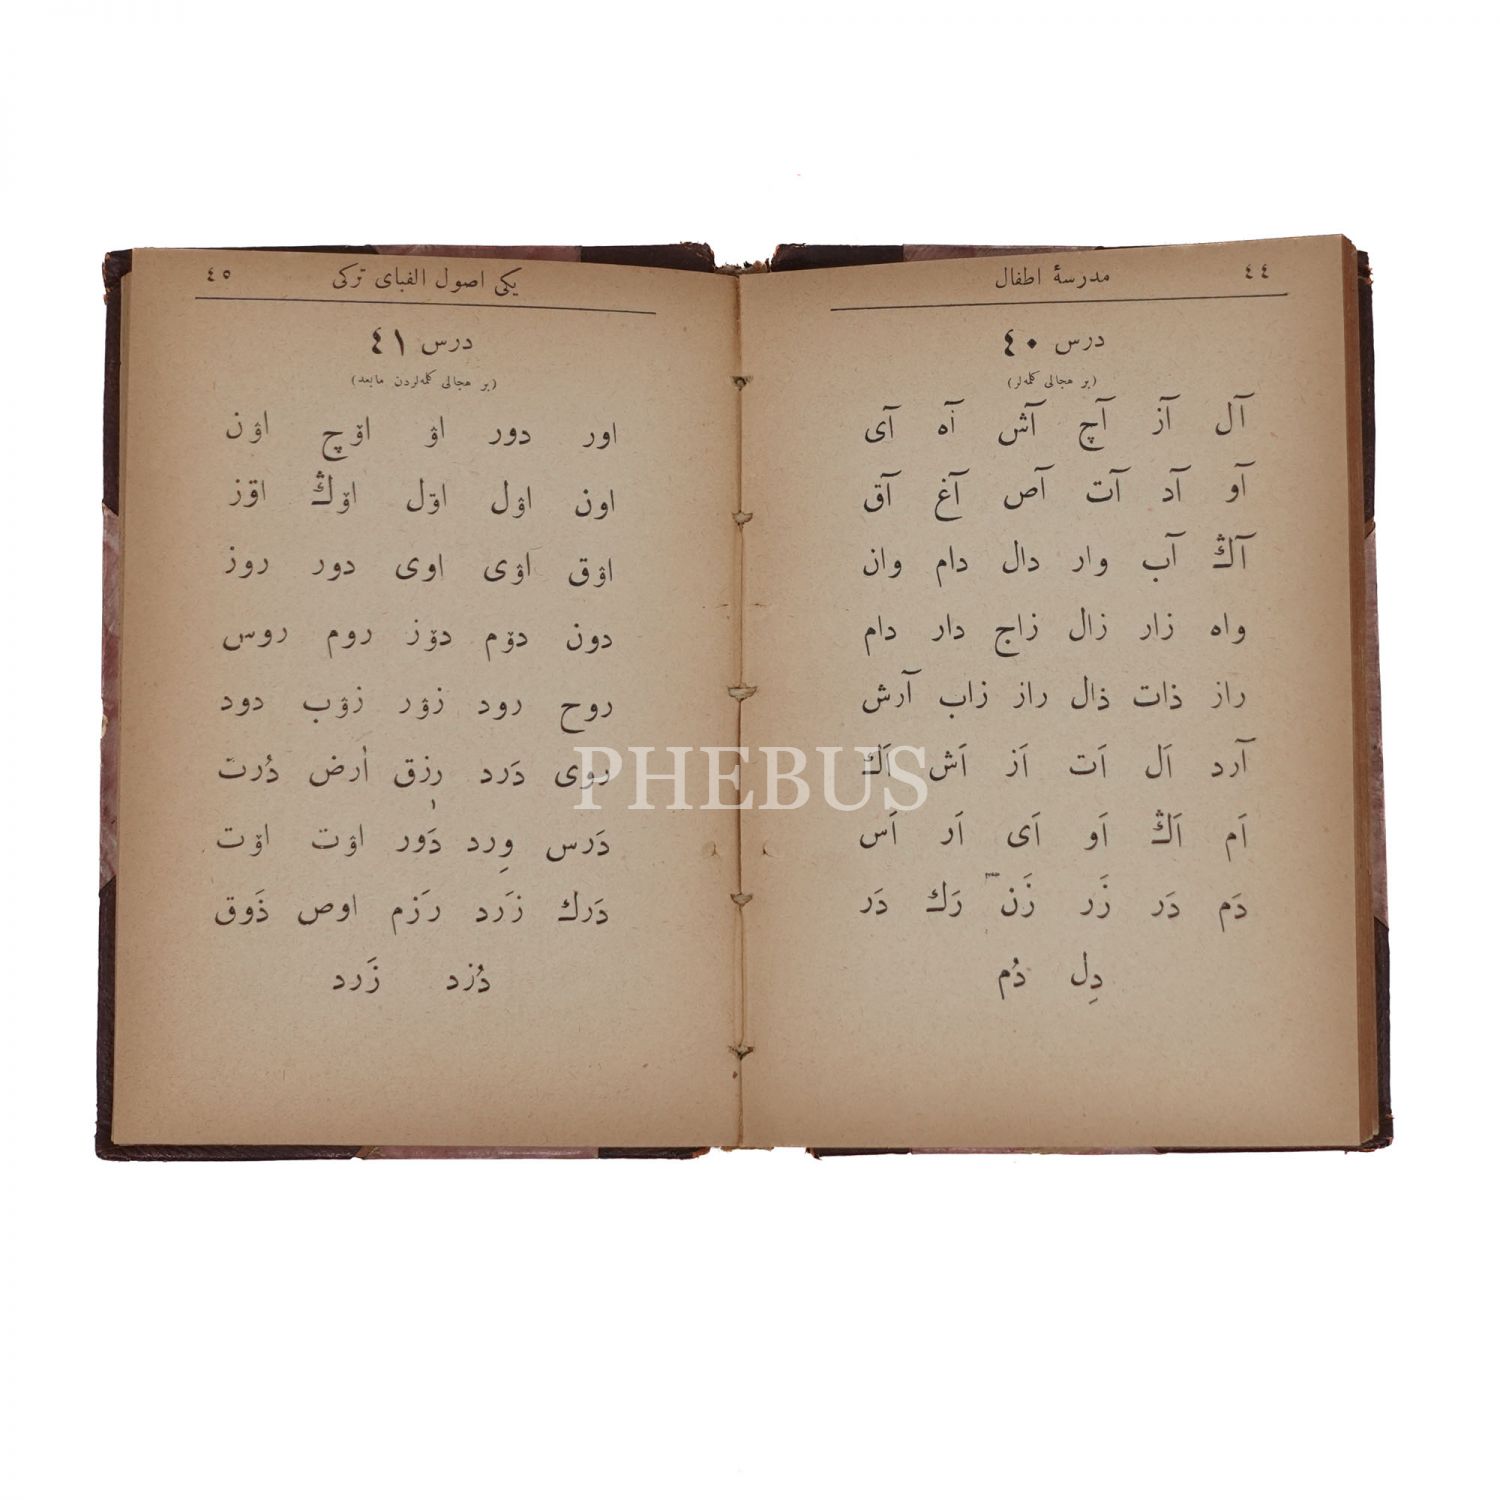 ٤٤ مدرسهٔ اطفال
درس ٤٠
(بر هجالی کلمه‌لر)
آل آز آچ آش آه آی
آو آد آت آص آغ آق
آڭ آب وار دال دام وان
واه زار زال زاج دار دام
راز ذات ذال راز زاب آرش
آرد اَل اَت اَز اَش اَك
اَم اَڭ اَو اَی اَر اَس
دَم دَر زَر زَن رَك دَر
دِل دُم
یکی اصول الفبای ترکی ٤٥
درس ٤١
(بر هجالی کلمه‌لردن مابعد)
اور دور اۋ اۆچ اۋن
اون اۋل اۆل اۆڭ اۆز
اۋق اۋی اوی دور روز
دون دۆم دۆز روم روس
روح رود زۋر زۋب دود
روی دَرد رِزق اَرض دُرت
دَرس وِرد دَور اۋت اۆت
دَرك زَرد رَزم اوص ذَوق
دُزد زَرد
PHEBUS